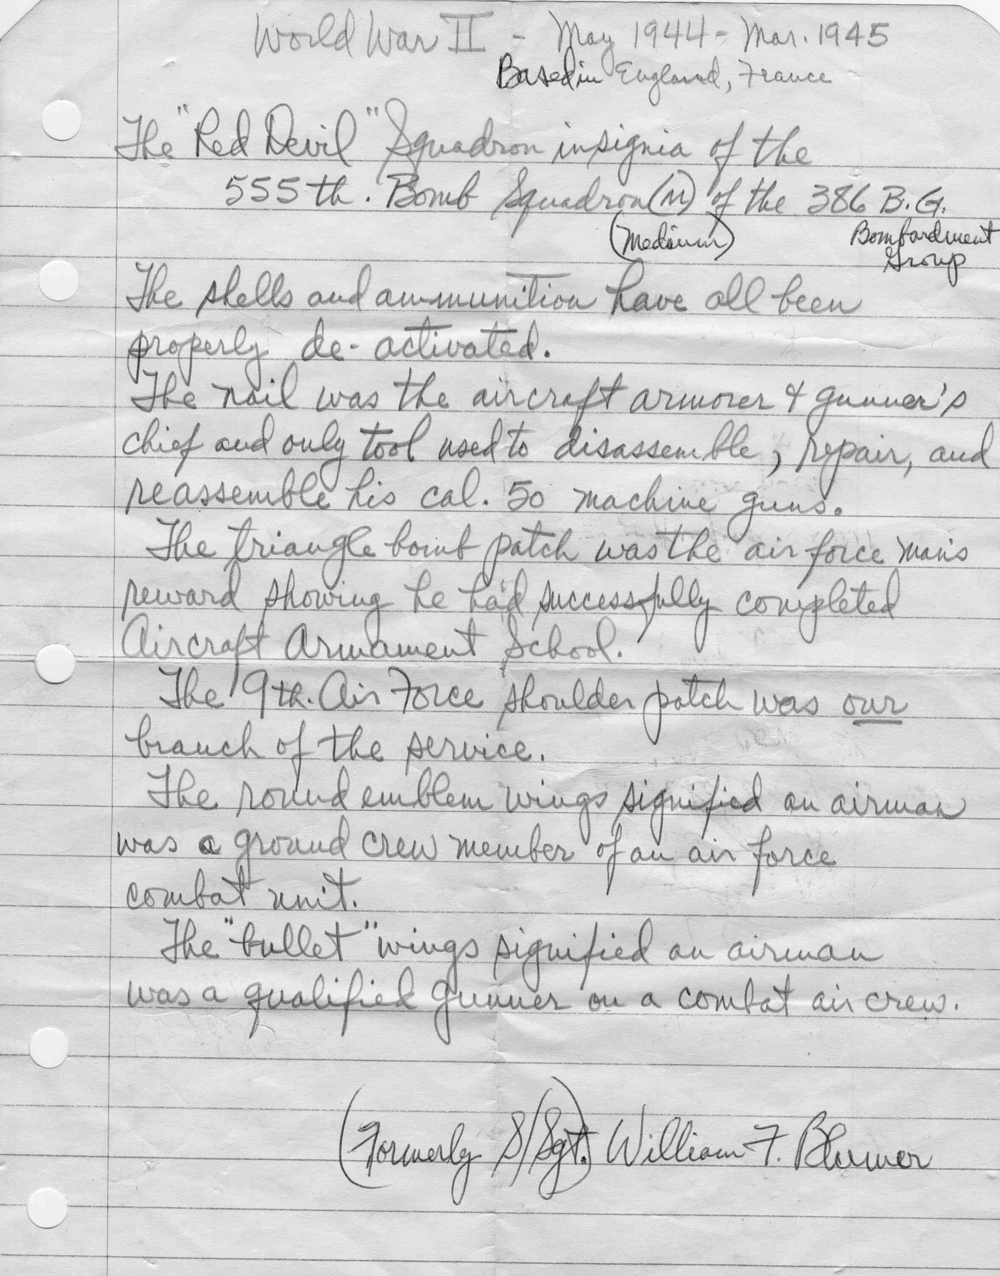 World War II - May 1944 - Mar. 1945
Based in England, France
The "Red Devil" Squadron insignia of the
555th. Bomb Squadron (M) of the 386 B.G.
(Medium) Bombardment
Group
The shells and ammunition have all been
properly de-activated.
The nail was the aircraft armorer & gunner's
chief and only tool used to disassemble, repair, and
reassemble his cal. 50 machine guns.
The triangle bomb patch was the air force man's
reward showing he had successfully completed
Aircraft Armament School.
The 9th. Air Force shoulder patch was our
branch of the service.
The round emblem wings signified an airman
was a ground crew member of an air force
combat unit.
The "bullet" wings signified an airman
was a qualified gunner on a combat air crew.
(Formerly S/Sgt.) William F. Blumer